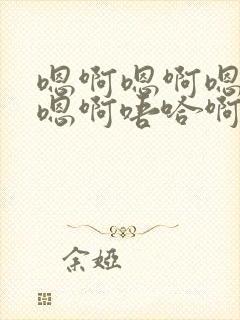 嗯啊嗯啊嗯
嗯啊唔哈啊
余娅